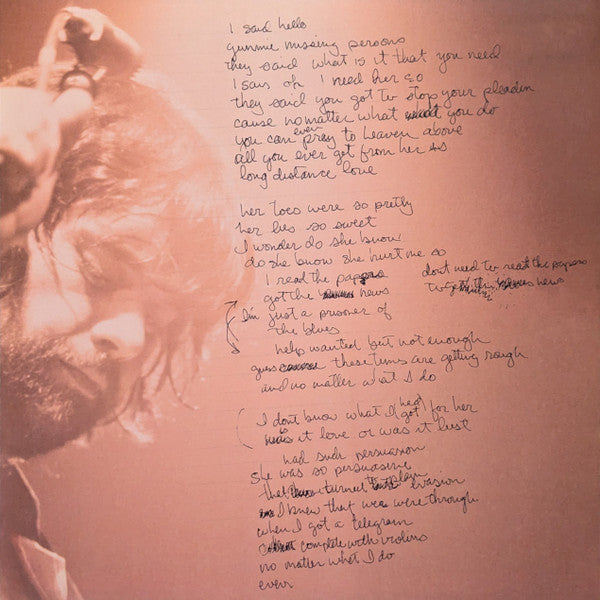 I said hello
gimme missing persons
they said what is it that you need
I says oh I need her so
they said you got to stop your pleadin
cause no matter what you do
you can even pray to heaven above
all you ever get from her is
long distance love
her toes were so pretty
her lies so sweet
I wonder do she know
do she know she hurt me so
I read the papers dont need to read the papers
got the news to get the news
I'm just a prisoner of
the blues
help wanted but not enough
guess these times are getting rough
and no matter what I do
I dont know what I had got for her
was it love or was it lust
had such persuasion
she was so persuasive
that turned to plain evasion
I knew that we were through
when I got a telegram
complete with violins
no matter what I do
ever